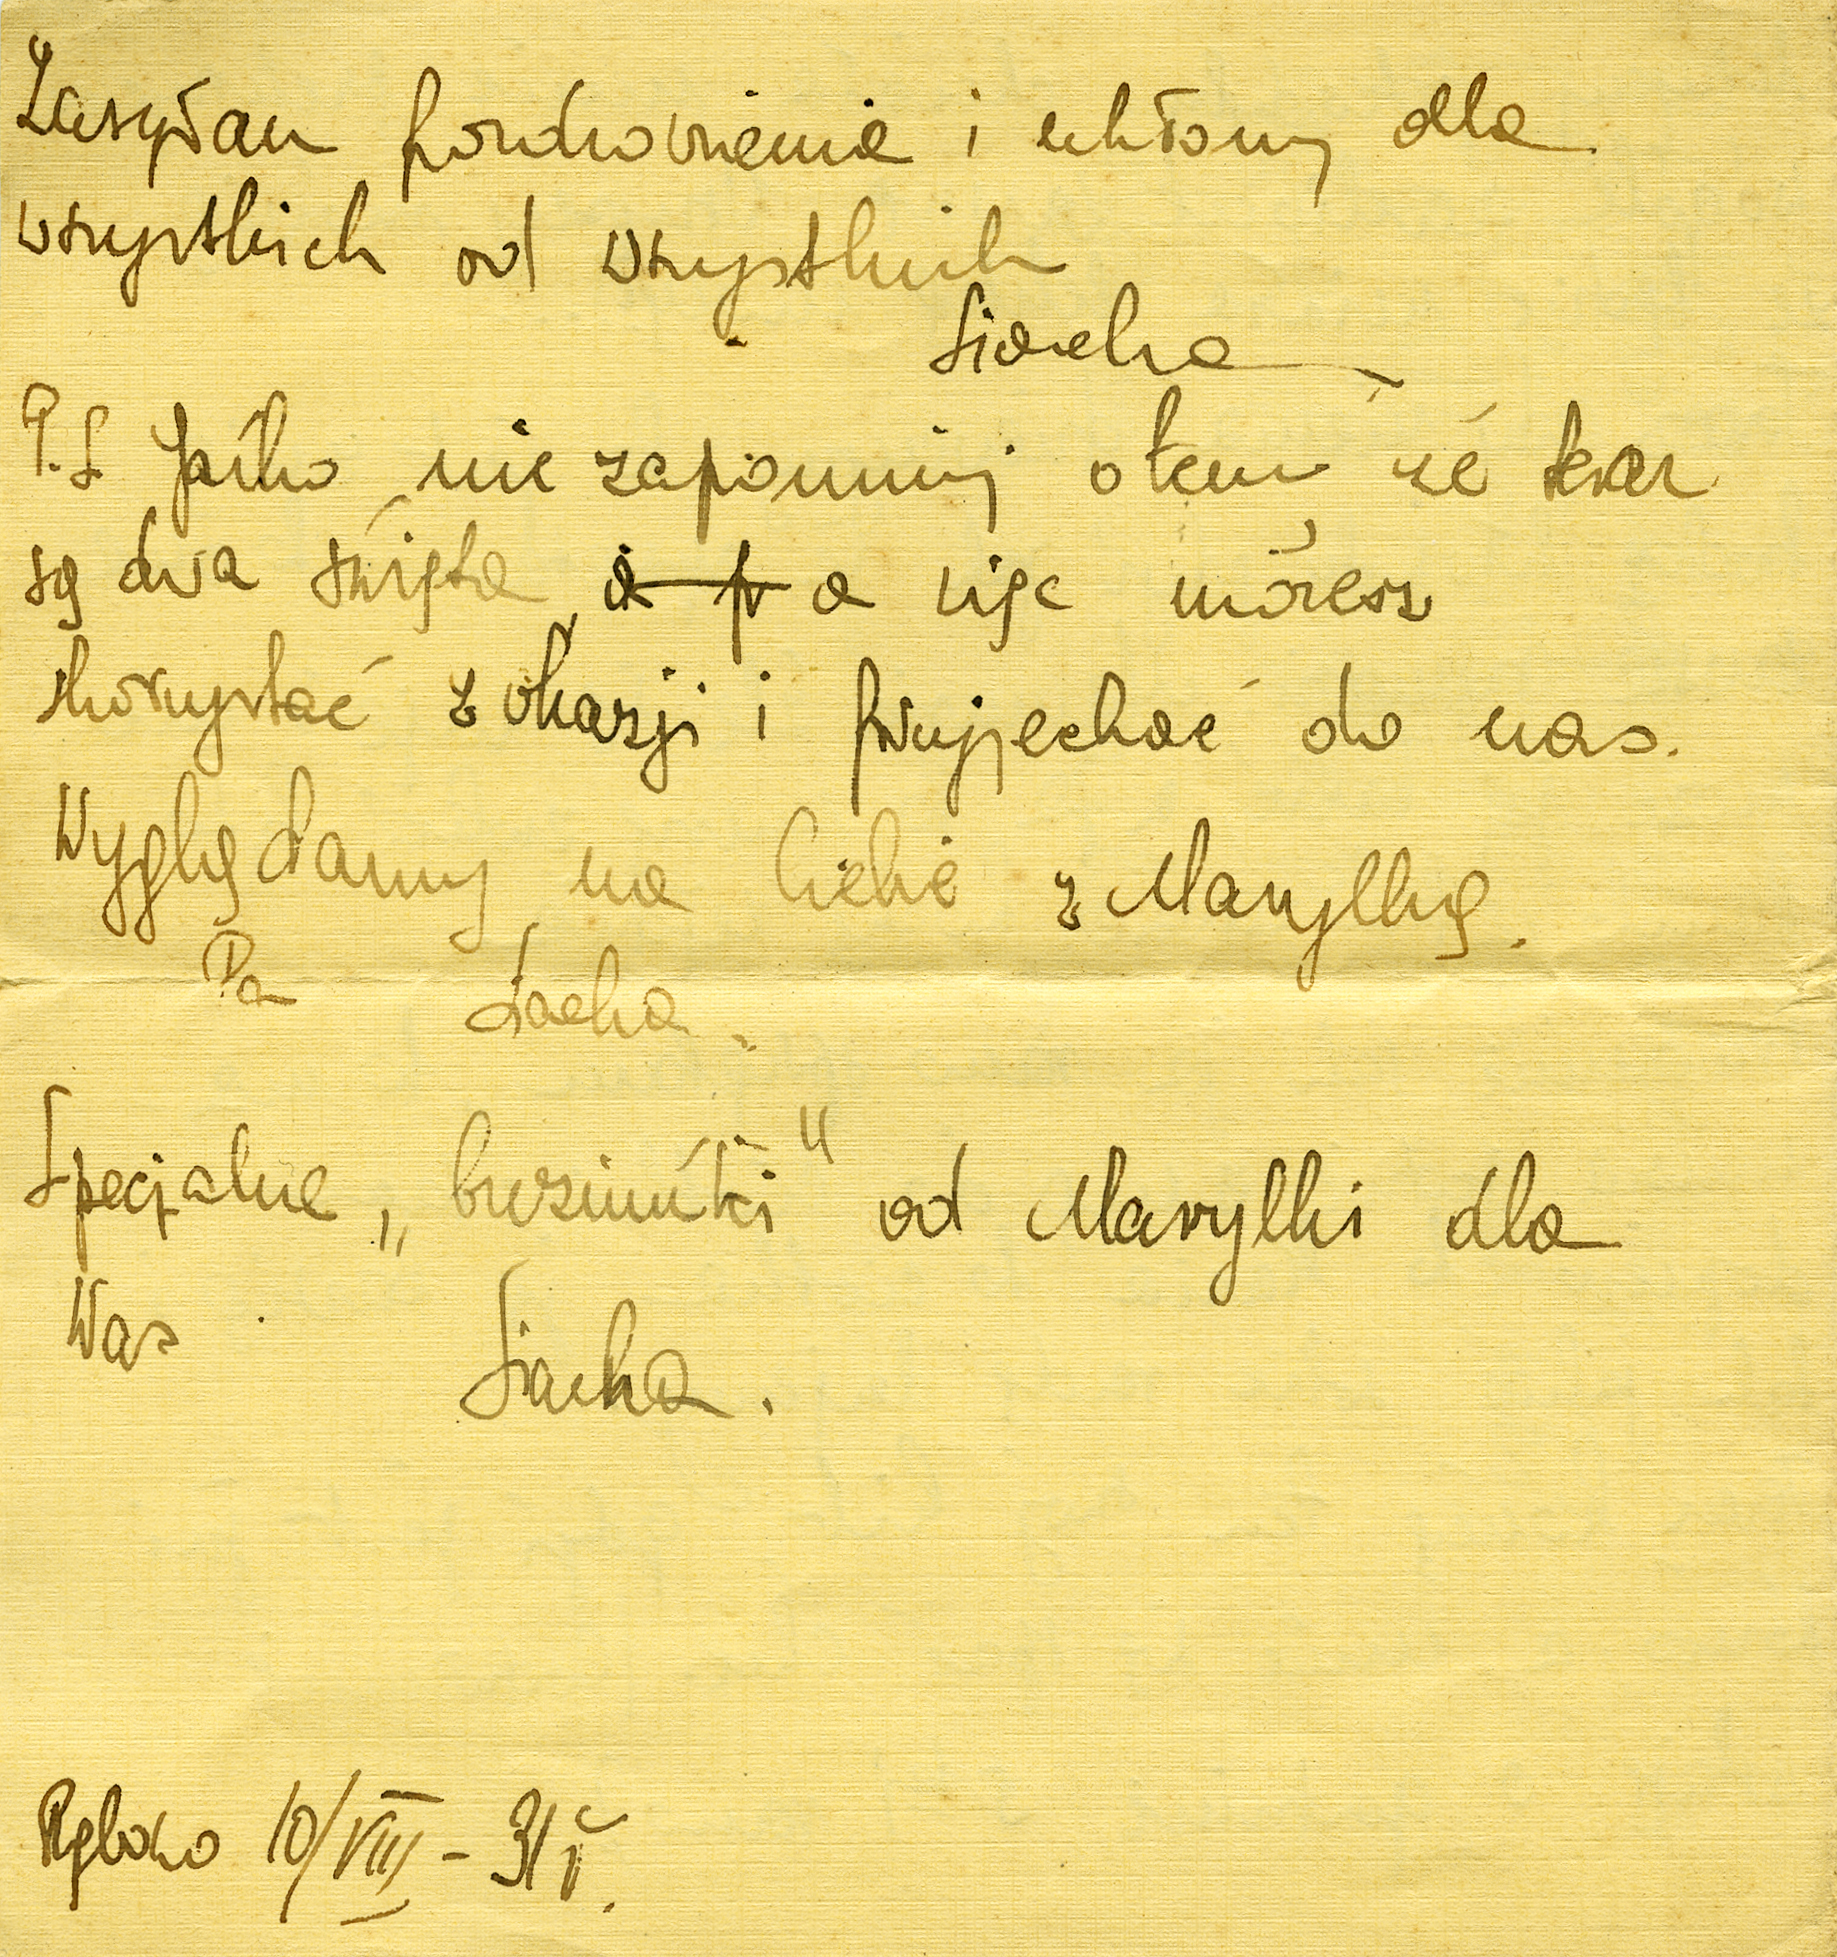 Zasyłam pozdrowienia i ukłony dla
wszystkich od wszystkich
Siacha
P.S Jaśko nie zapomnij otem że teraz
są dwa święta, a więc możesz
skorzystać z okazji i przyjechać do nas.
Wyglądamy na Ciebie z Marylką.
Pa Siacha.
Specjalne „buziuńki" od Marylki dla
Was
Siacha.
10/VIII - 31 r.